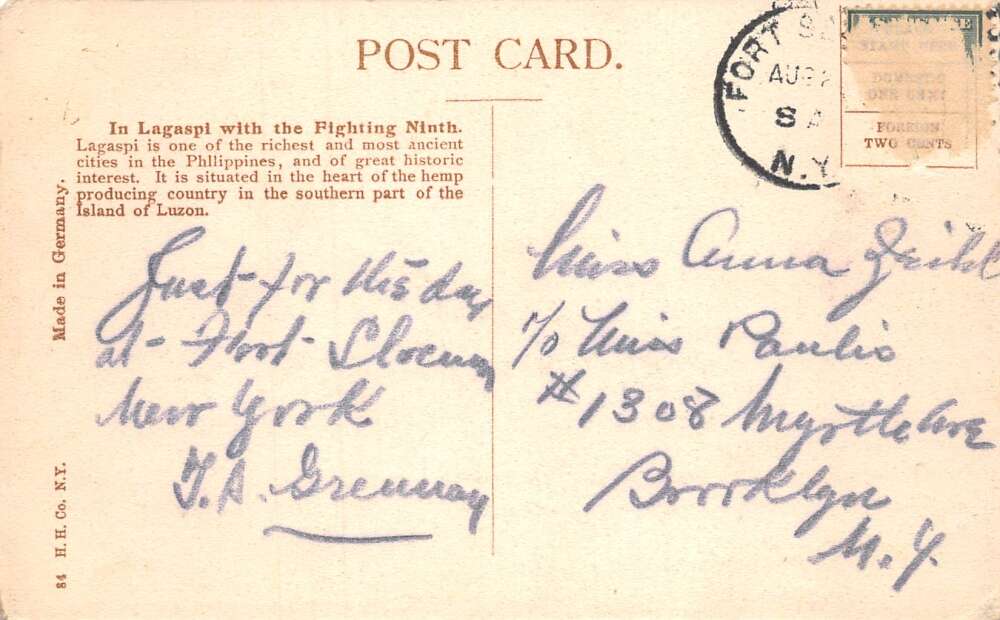 POST CARD.
In Lagaspi with the Fighting Ninth.
Lagaspi is one of the richest and most ancient
cities in the Phllippines, and of great historic
interest. It is situated in the heart of the hemp
producing country in the southern part of the
Island of Luzon.
Made in Germany.
84 H. H. Co. N.Y.
Just for this day
at Fort Slocum
New York
FORT
AUG
N.Y.
DOMESTIC
ONE CENT
FOREIGN
TWO CENTS
Miss Anna
c/o Miss
# 1308 Myrtle Ave
Brooklyn
N.Y.